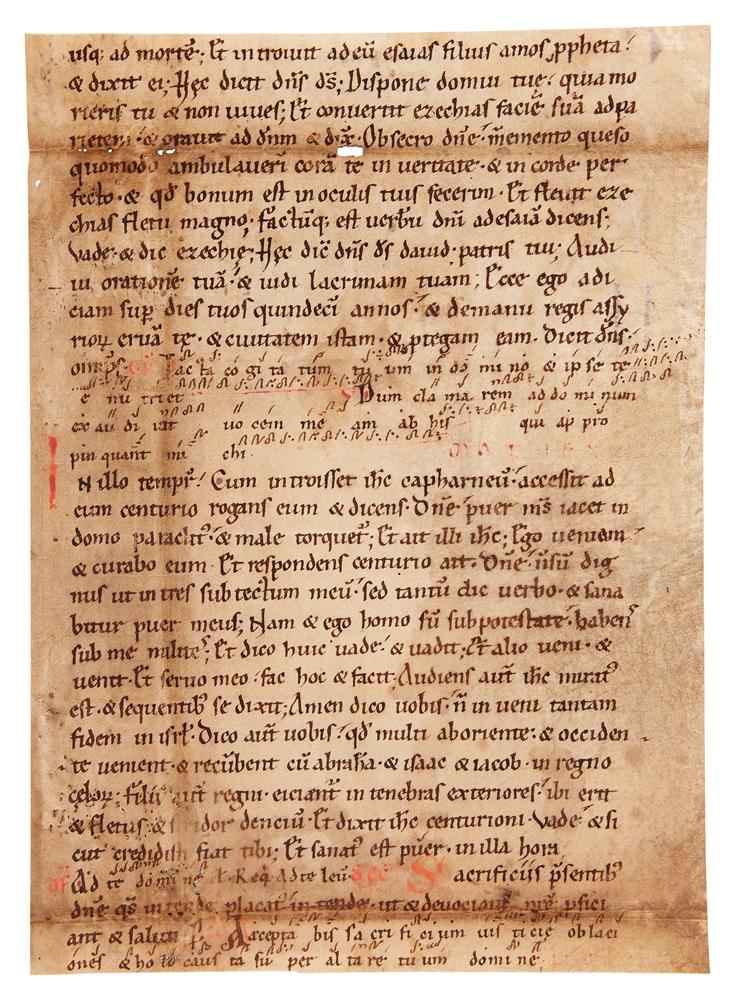 usq; ad mortē; Et introiuit ad eū esaias filius amos ꝓpheta.
& dixit ei; Hęc dicit dn̄s ds̄; Dispone domui tuę. quia mo
rieris tu & non uiues; Et conuertit ezechias faciē suā ad pa
rietem. & orauit ad dn̄m & dix̄. Obsecro dn̄e. memento queso
quomodo ambulauerī corā te in ueritate. & in corde per
fecto. & qd̄ bonum est in oculis tuis fecerim. Et fleuit eze
chias fletu magno. factūq; est uerbū dn̄i ad esaiā dicens;
Vade. & dic ezechię; Hęc dic̄ dn̄s ds̄ dauid. patris tui; Audi
ui orationē tuā. & uidi lacrimam tuam; Ecce ego adi
ciam sup̄ dies tuos quindecī annos. & de manu regis assy
rioꝝ eruā te. & ciuitatem istam. & ꝓtegam eam. Dicit dn̄s.
omp̄s. Iac ta co gi ta tum tu um in do mi no & ip se te
e nu triet Dum cla ma rem ad do mi num
ex au di uit uo cem me am ab his qui ap pro
pin quant mi chi.
N illo tempr̄. Cum introisset ihc̄ capharneū. accessit ad
eum centurio rogans eum & dicens. Dn̄e. puer m̄s iacet in
domo paraclit᾽. & male torquet᾽; Et ait illi ihc̄; Ego ueniam
& curabo eum. Et respondens centurio ait. Dn̄e. n̄ sū dig
nus ut intres sub tectum meū. sed tantū dic uerbo. & sana
bitur puer meus; Nam & ego homo sū sub potestate. habens
sub me milites; Et dico huic uade. & uadit; Et alio ueni. &
uenit. Et seruo meo. fac hoc & facit; Audiens aut̄ ihc̄ mirat᾽
est. & sequentib᾽ se dixit; Amen dico uobis. n̄ in ueni tantam
fidem in isrł. Dico aut̄ uobis. qd̄ multi ab oriente. & occiden
te uenient. & recūbent cū abraha. & isaac & iacob. in regno
cęloꝝ. filii aut regni. eiciant᾽ in tenebras exteriores. ibi erit
& fletus & stridor denciū. Et dixit ihc̄ centurioni. Vade. & si
cut credidisti fiat tibi; Et sanat᾽ est puer. in illa hora
Ad te domine Ad te leu Sec Sacrificiis p̄sentib᾽
dn̄e qs̄ intende placat᾽ intende. ut & deuocioni nr̄ę ꝓfici
ant & saluti Accepta bis sa cri fi ci um ius ti cie ob laci
ones & ho lo caus ta su per al ta re tu um domi ne